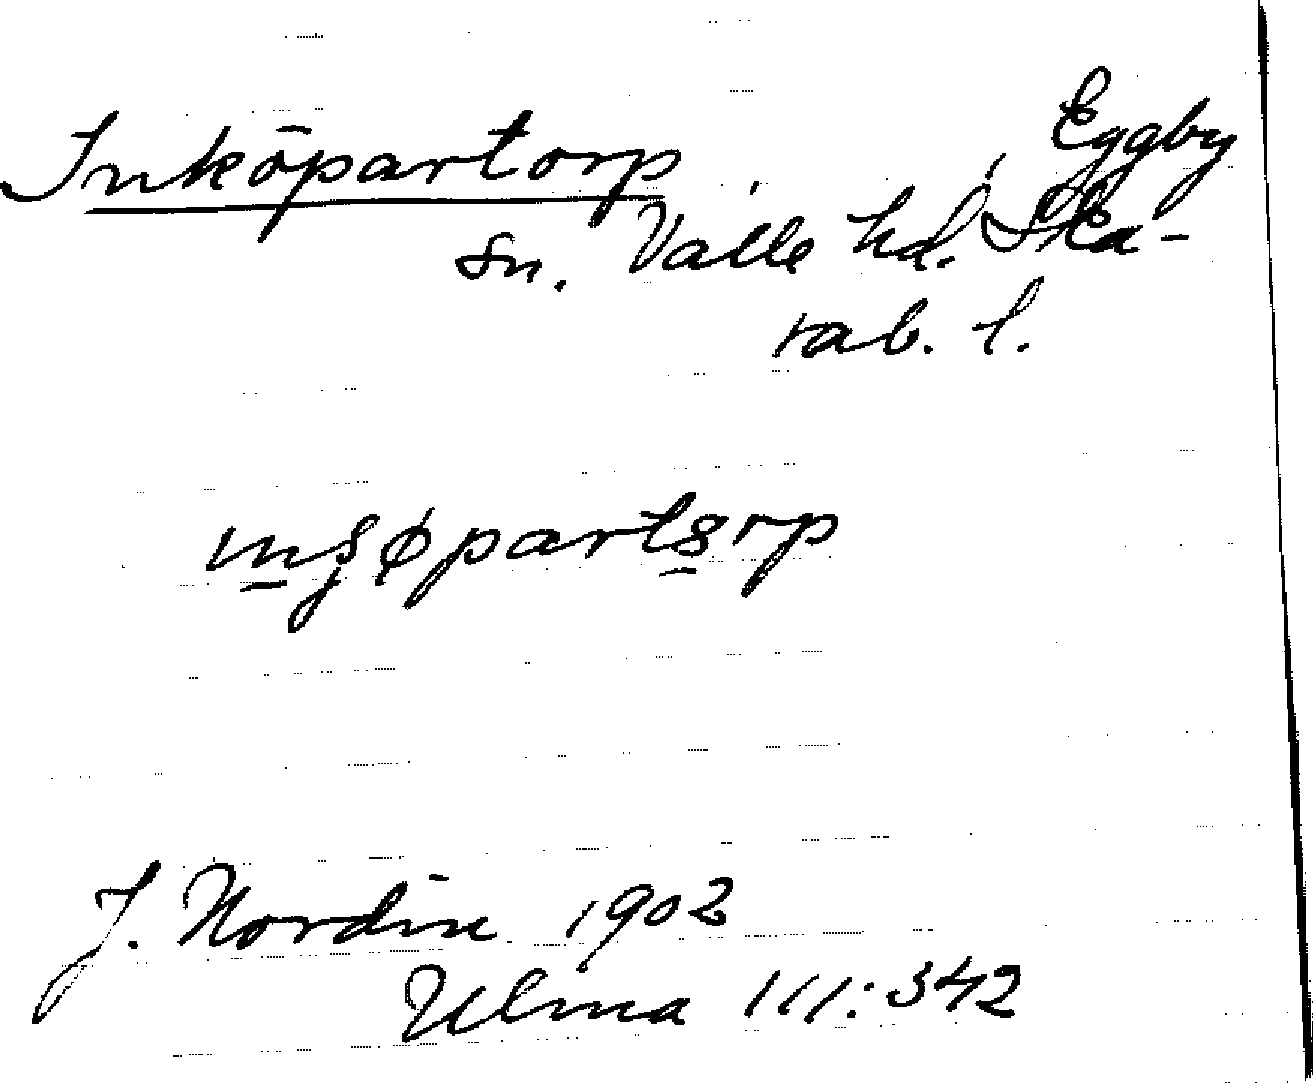 Inköpartorp, Eggby
sn. Valle hd. Ska-
rab. l.
J. Nordin 1902
Ulma 111:342